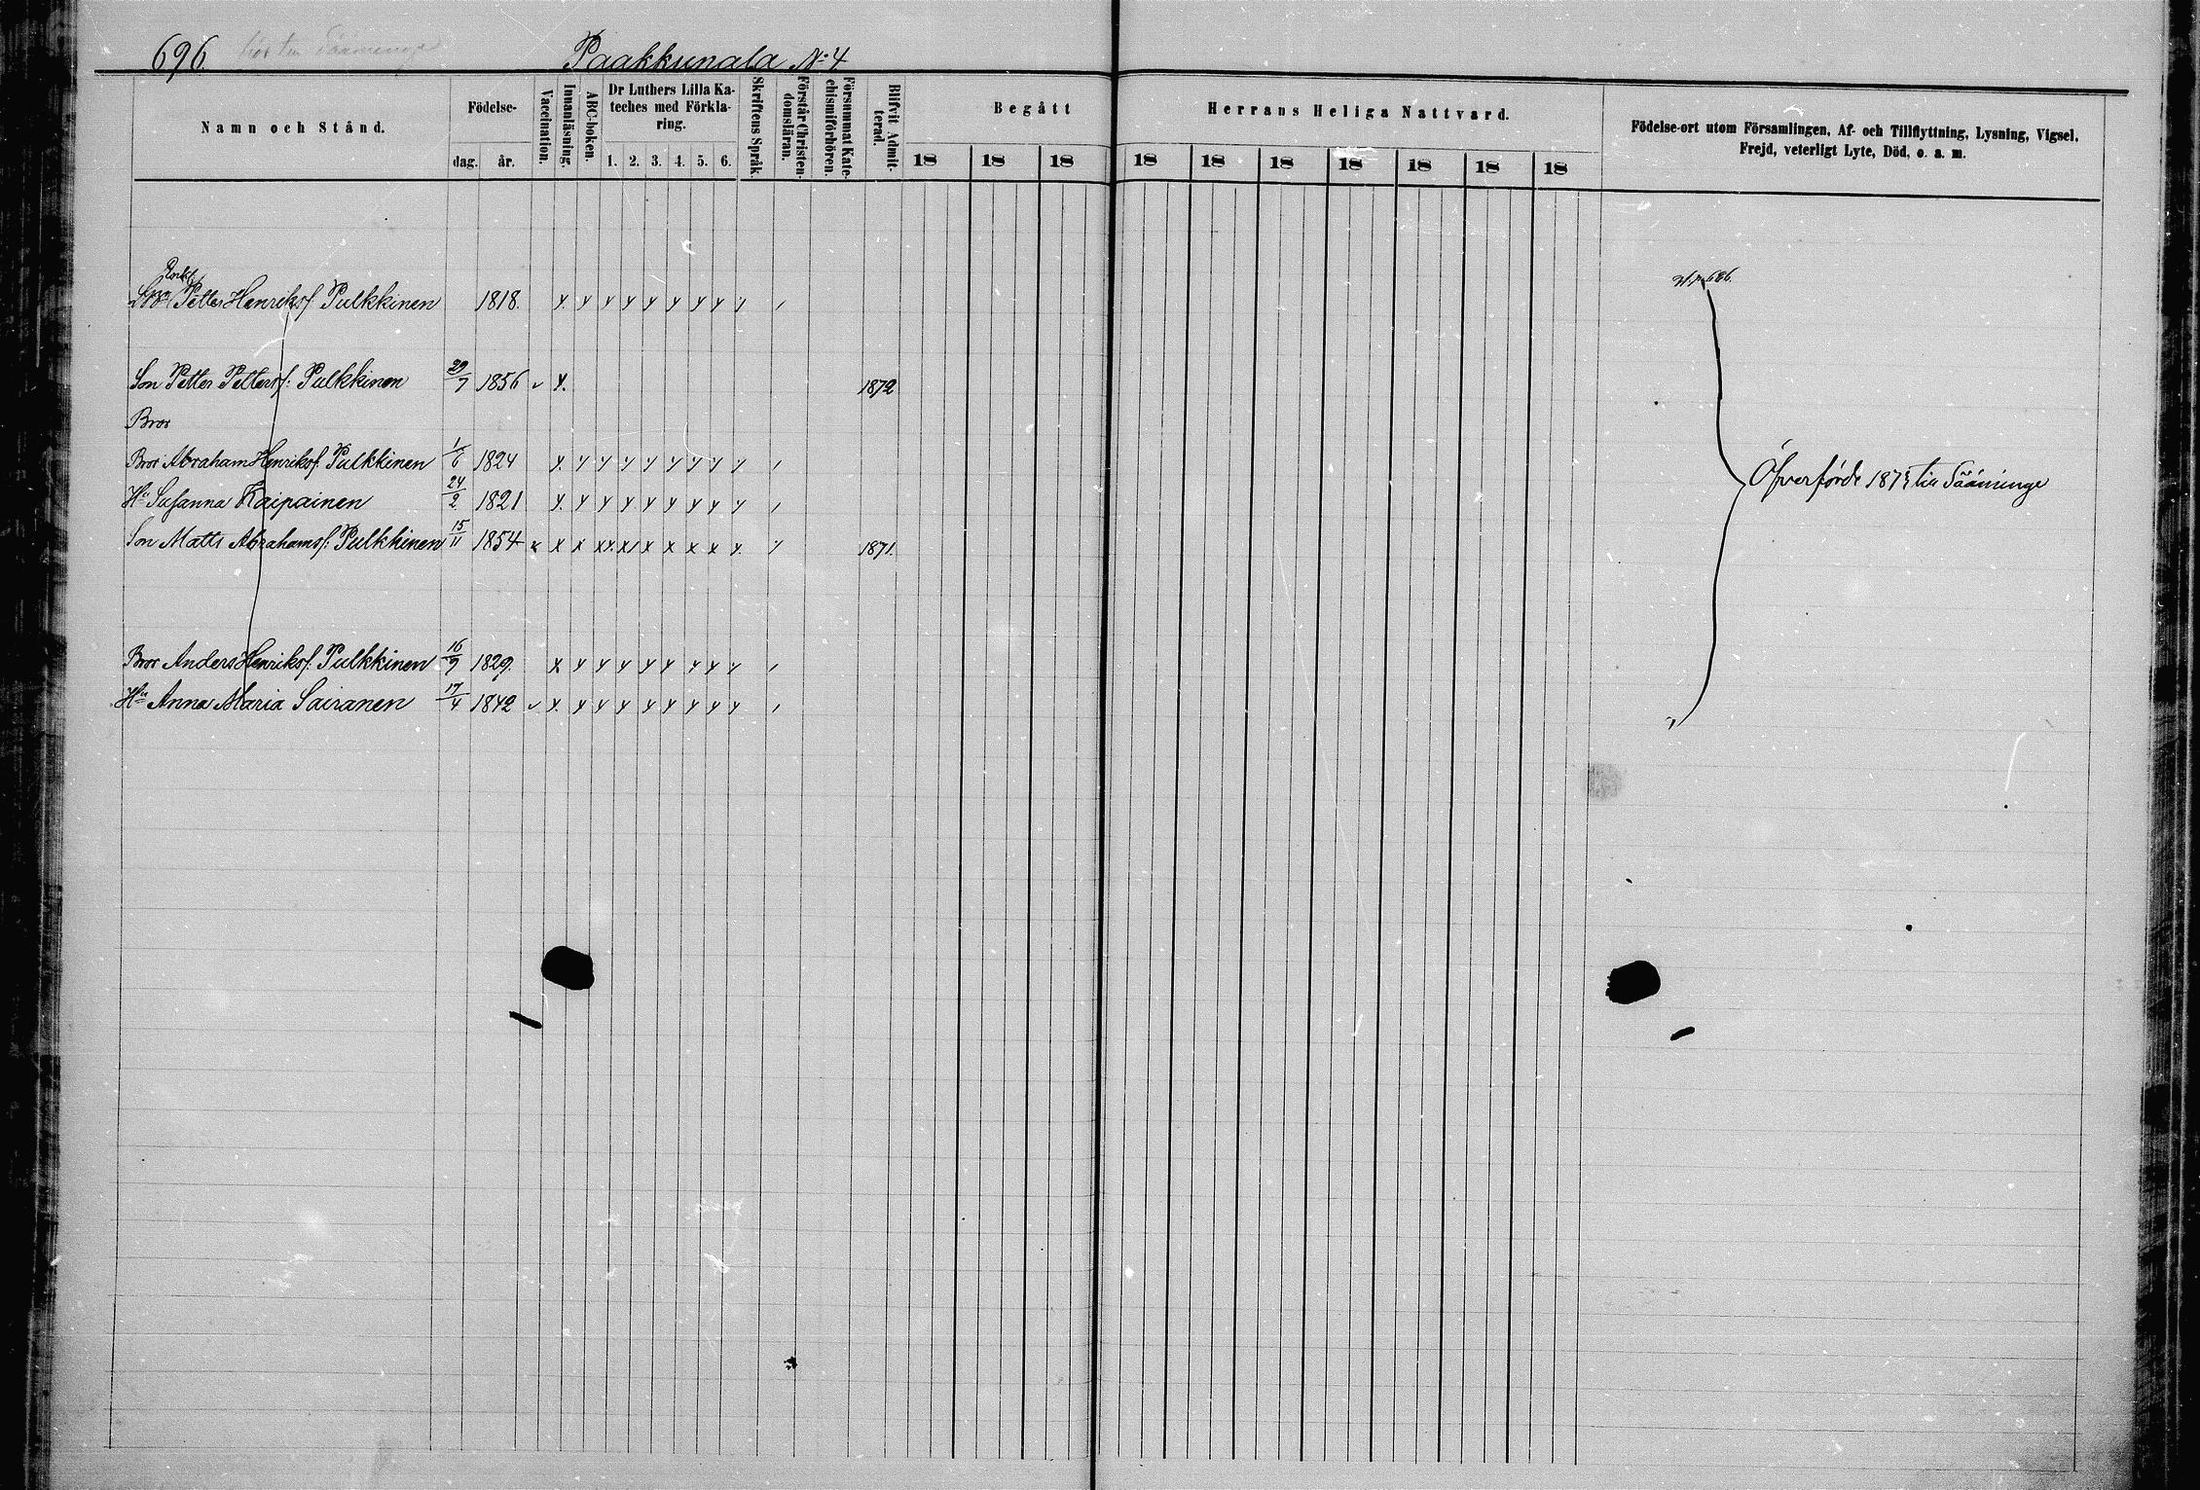 696. hör till Sääminge Paakkunala No 4
Namn och Stånd.
Födelse-
dag. år.
Vaccination.
Innanläsning.
ABC-boken.
Dr Luthers Lilla Ka-
teches med Förkla-
ring.
1. 2. 3. 4. 5. 6.
Skriftens Språk.
Förstår Christen-
domsläran.
Försummat Kate-
chismiförhören.
Blifvit Admit-
terad.
Begått Herrans Heliga Nattvard.
18 18 18 18 18 18 18 18 18 18
Födelse-ort utom Församlingen, Af- och Tillflyttning, Lysning, Vigsel,
Frejd, veterligt Lyte, Död, o. a. m.
Petter Henriksf. Pulkkinen 1818. x x x x x x x x x /
686.
Son Petter Pettersf: Pulkkinen 29/7 1856 v x. 1872
Bror
Bror Abraham Henriksf. Pulkkinen 1/6 1824 x x x x x x x x x /
Hu Susanna Kaipainen 24/2 1821 x x x x x x x x x /
Öfverförde till Sääminge
Son Matts Abrahamsf: Pulkkinen 15/11 1854 x x x xx xx x x x x x / 1871.
Bror Anders Henriksf. Pulkkinen 16/9 1829. x x x x x x x x x /
Hu Anna Maria Sairanen 17/4 1842 v x x x x x x x x x /